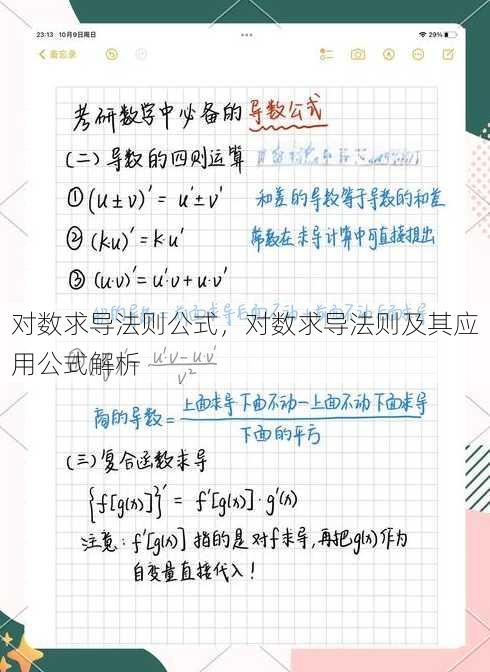 23:13 10月9日周日
29%
备忘录
考研数学中必备的导数公式
(二)导数的四则运算
①(u±v)'=u'±v' 和差的导数等于导数的和差
②(ku)'=k·u' 常数在求导计算中可直接提出
③(u·v)'=u'·v+u·v'
对数求导法则公式，对数求导法则及其应
用公式解析
u'v-u·v'
v²
商的导数=上面求导下面不动-上面不动下面求导
下面的平方
(三)复合函数求导
{f[g(x)]}'=f'[g(x)]·g'(x)
注意:f'[g(x)]指的是对f求导,再把g(x)作为
自变量直接代入!